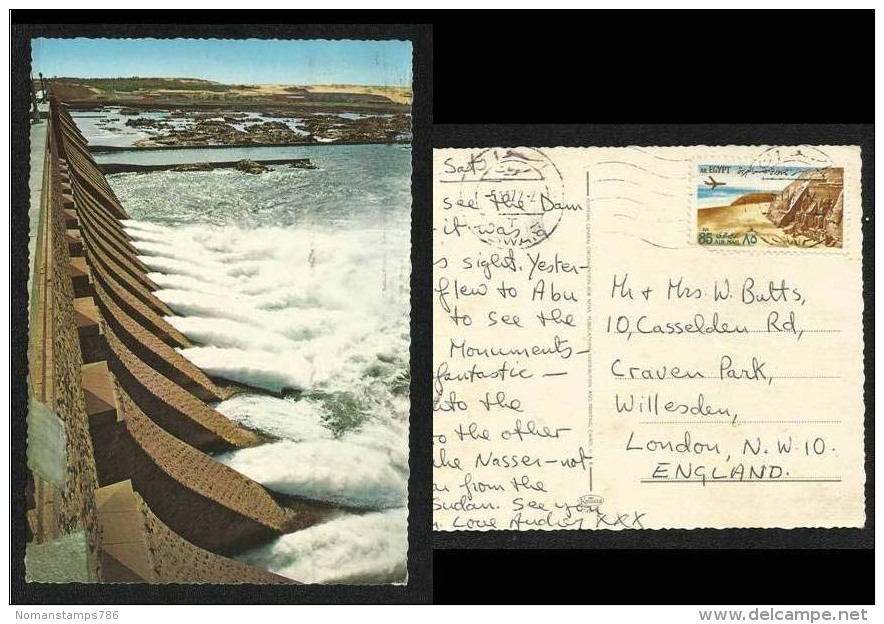 Sat
see the Dam
-it was
s sight. Yester-
flew to Abu
to see the
Monuments-
fantastic -
into the
o the other
ake Nasser-not
from the
Sudan. See you
Love Audrey XXX
A.R. EGYPT
85 AIR MAIL ٨٥
Mr + Mrs. W. Butts,
10, Casselden Rd,
Craven Park,
Willesden,
London, N.W.10.
ENGLAND.
Nomanstamps786
delcampe.net